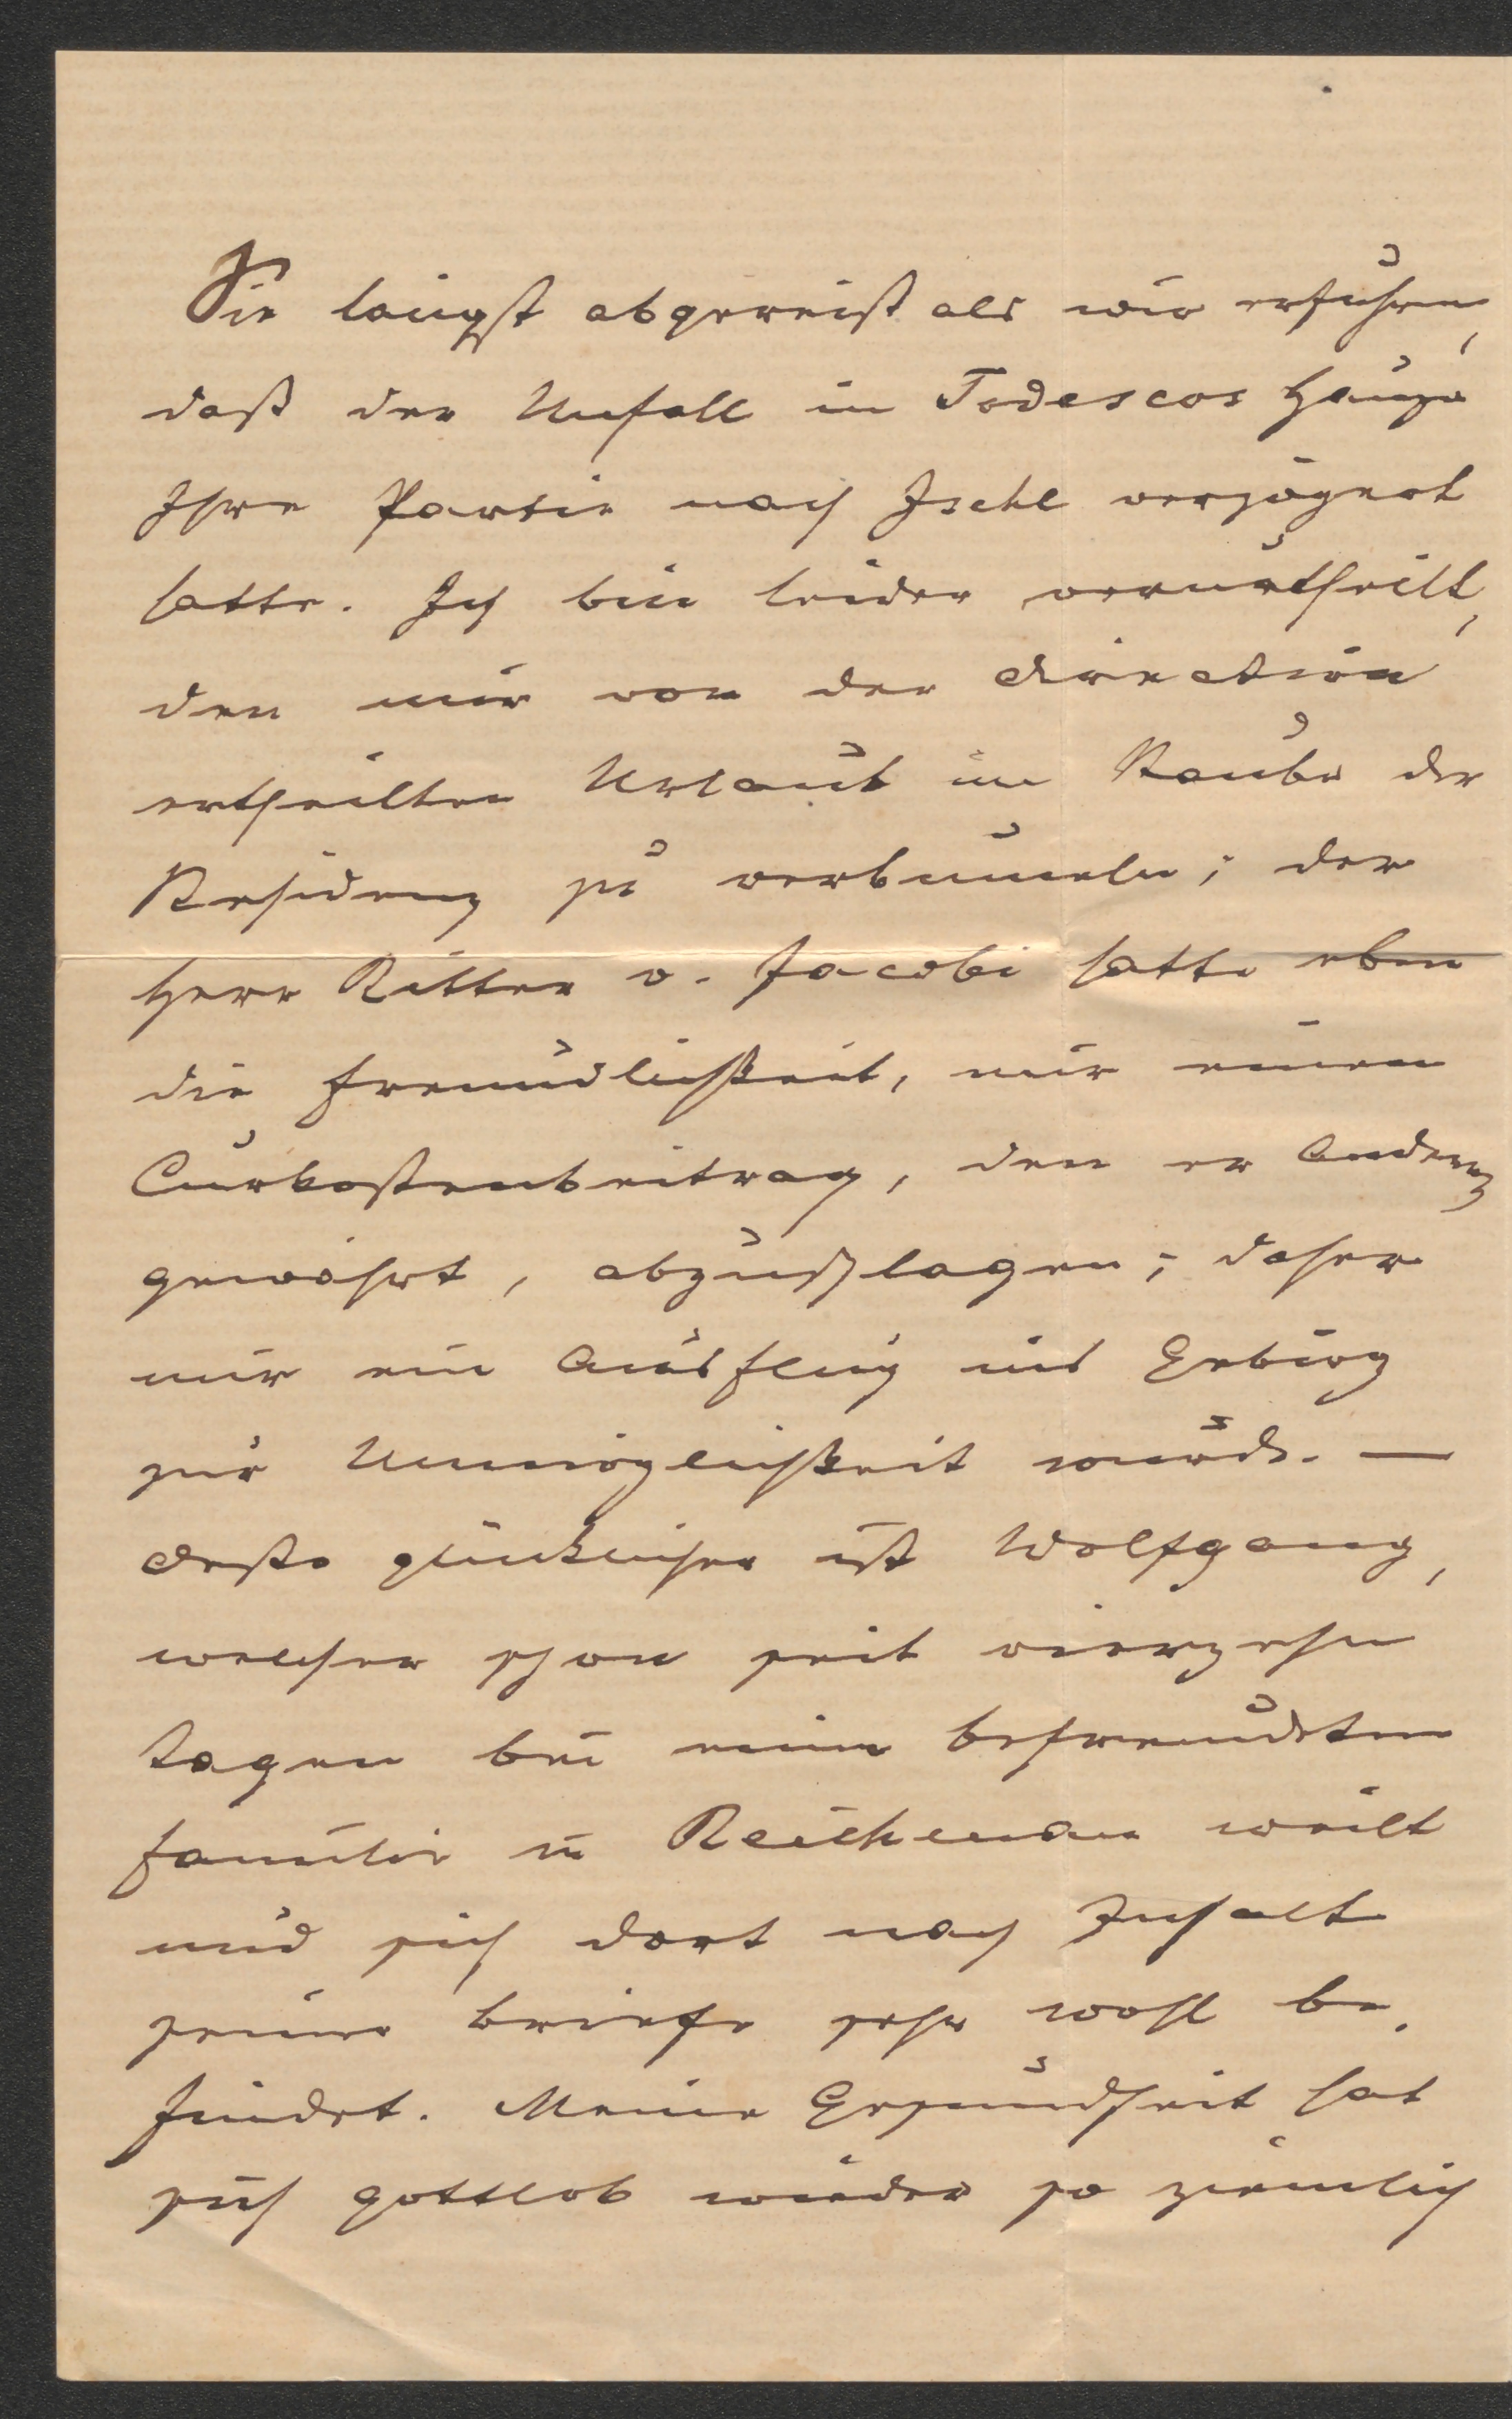 Sie längst abgereist als wir erfuhren,
daß der Unfall im Todescos Hause
Ihre Partie nach Ischl verzögert
hatte. Ich bin leider verurtheilt,
den mir von der Direction
ertheilten Urlaub im Staube der
Residenz zu verbummeln; der
Herr Ritter v. Jacobi hatte eben
die Freundlichkeit, mir einen
Curkostenbeitrag, den er Andern
gewährt, abzuschlagen; daher
mir ein Ausflug ins Gebirg
zur Unmöglichkeit wurde. —
Desto glücklicher ist Wolfgang,
welcher schon seit vierzehn
Tagen bei einer befreundeten
Familie in Reichenau weilt
und sich dort nach Inhalt
seiner Briefe sehr wohl be-
findet. Meine Gesundheit hat
sich gottlob wieder so ziemlich